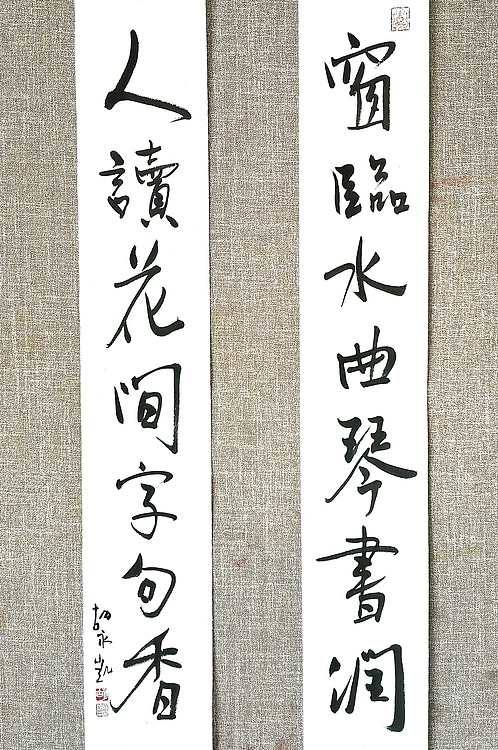 窗臨水曲琴書潤
人讀花間字句香
胡永凱